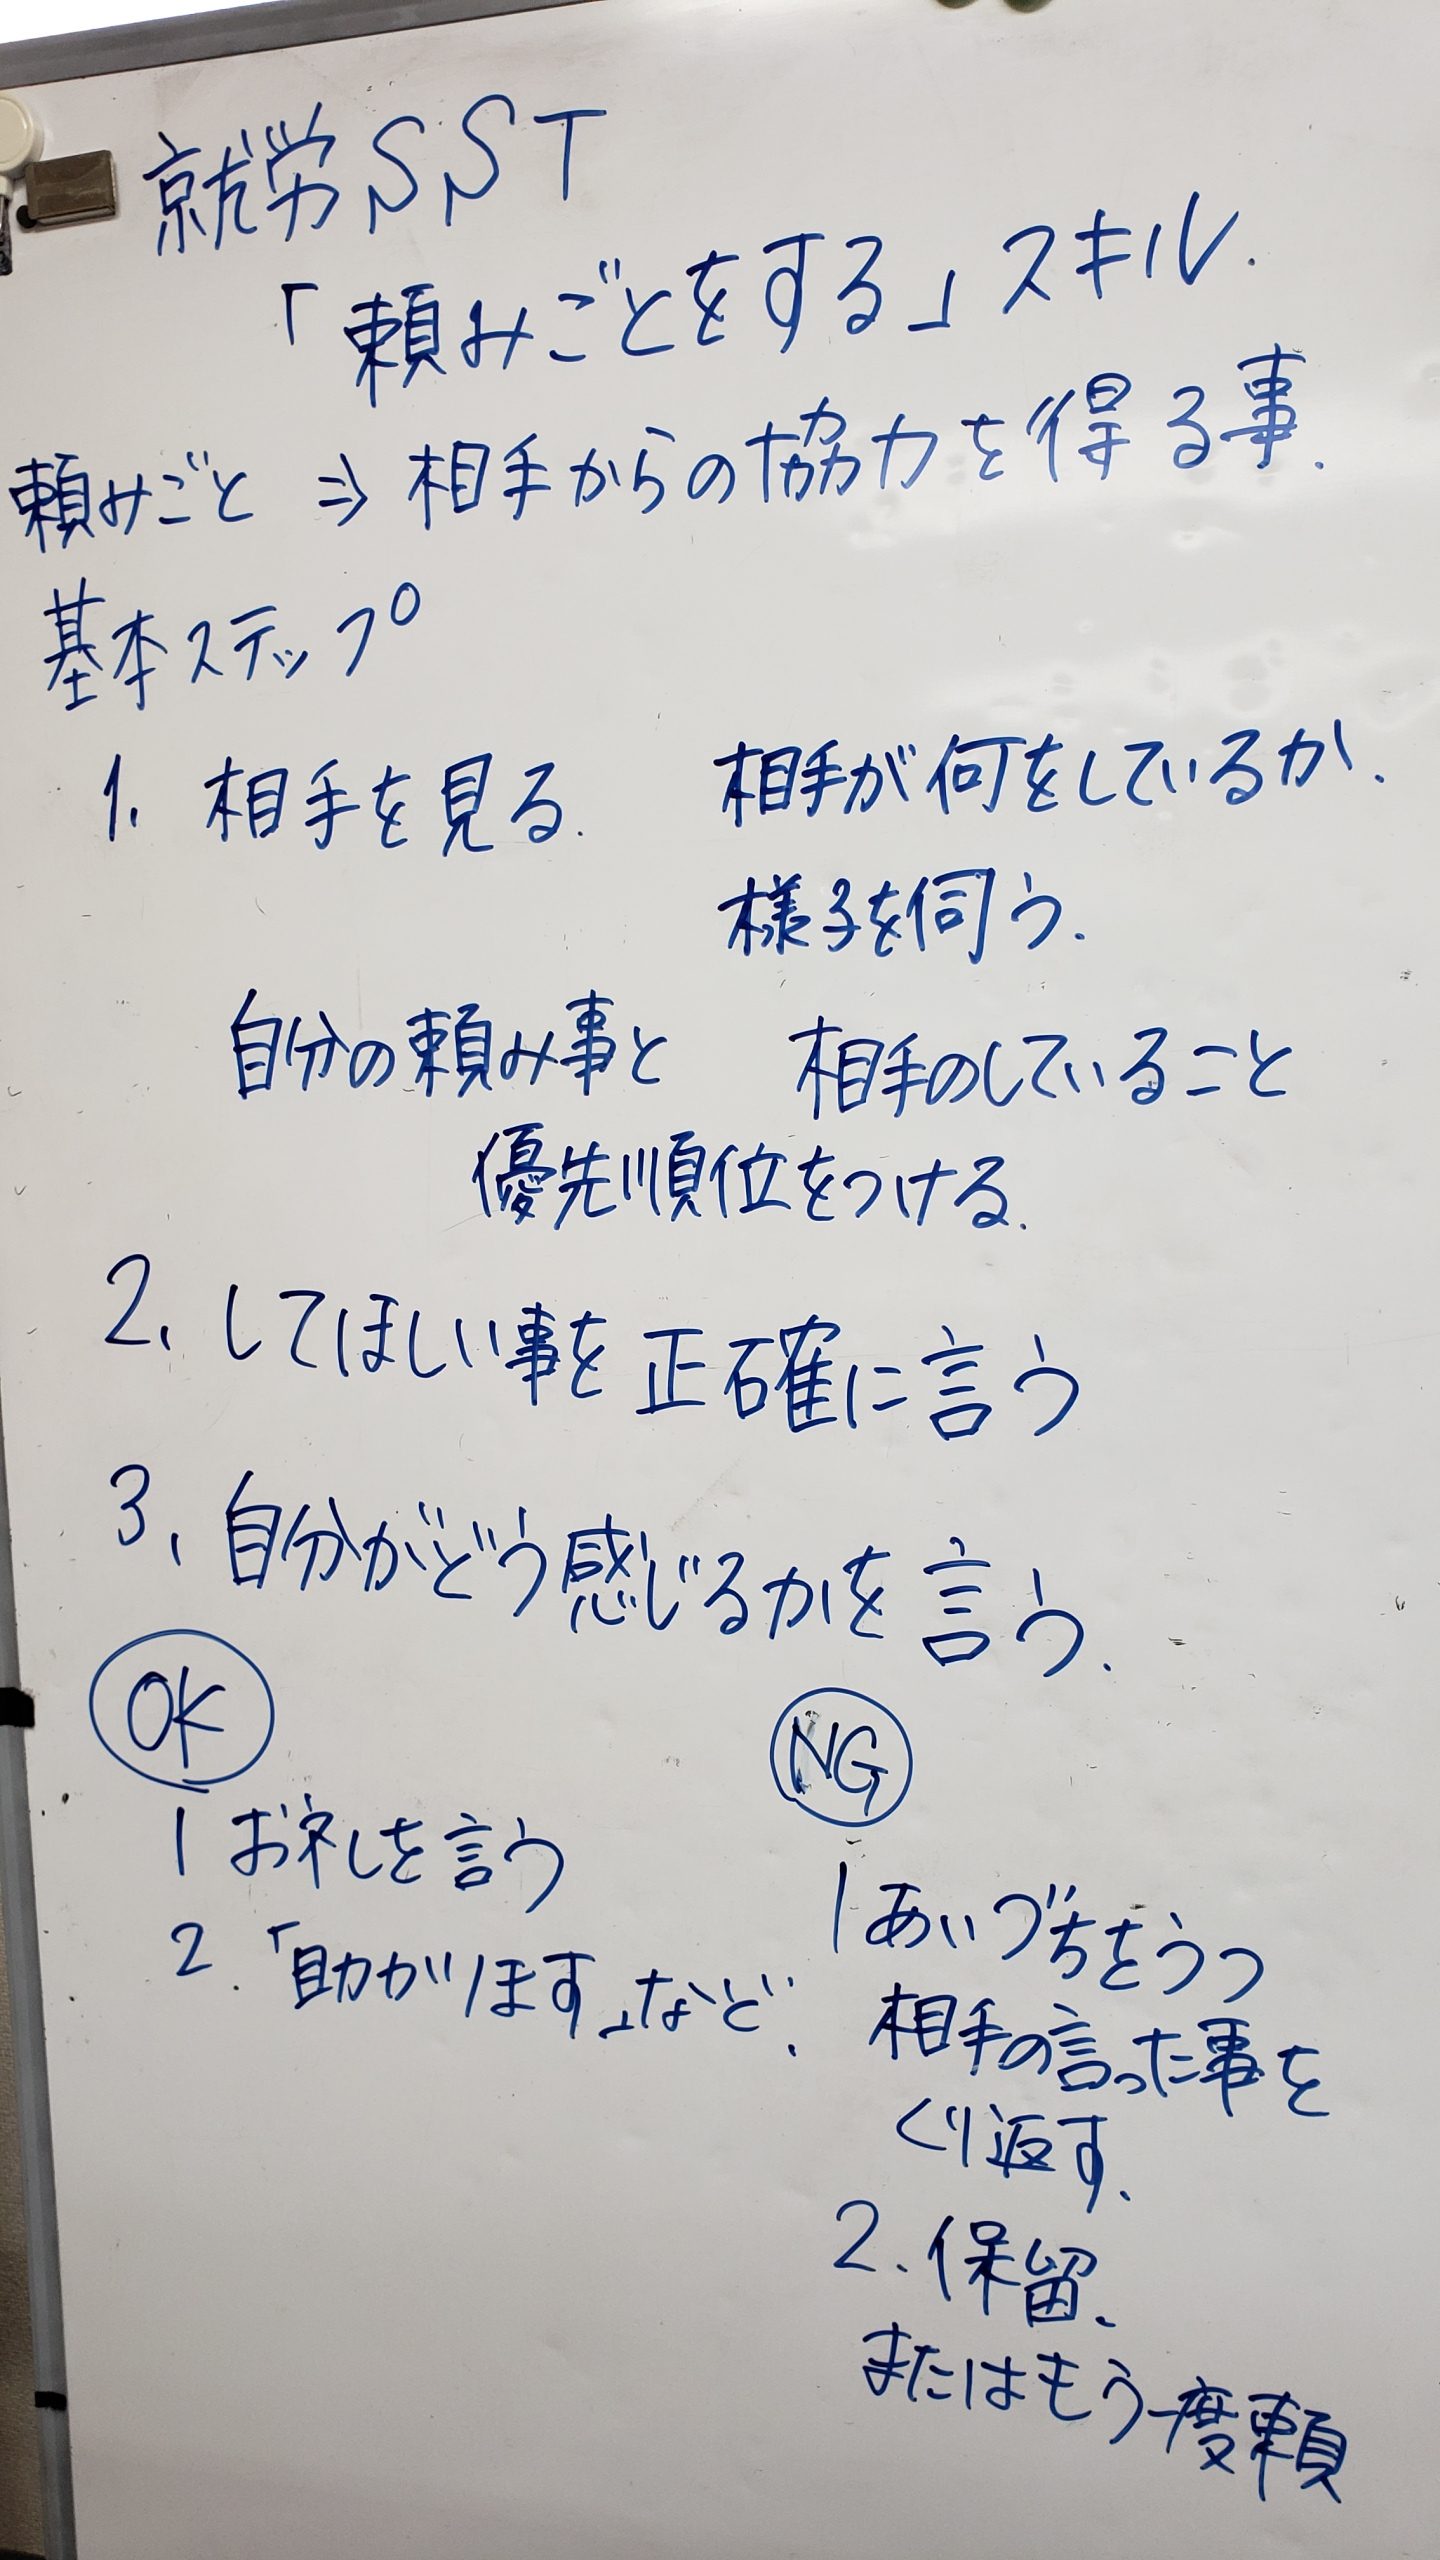 就労SST
「頼みごとをする」スキル.
頼みごと ⇒ 相手からの協力を得る事.
基本ステップ
1. 相手を見る. 相手が何をしているか.
様子を伺う.
自分の頼み事と 相手のしていること
優先順位をつける.
2. してほしい事を正確に言う
3. 自分がどう感じるかを言う.
OK
1 お礼を言う
2. 「助かります」など.
NG
1 あいづちをうつ
相手の言った事を
くり返す.
2. 保留、
またはもう一度頼